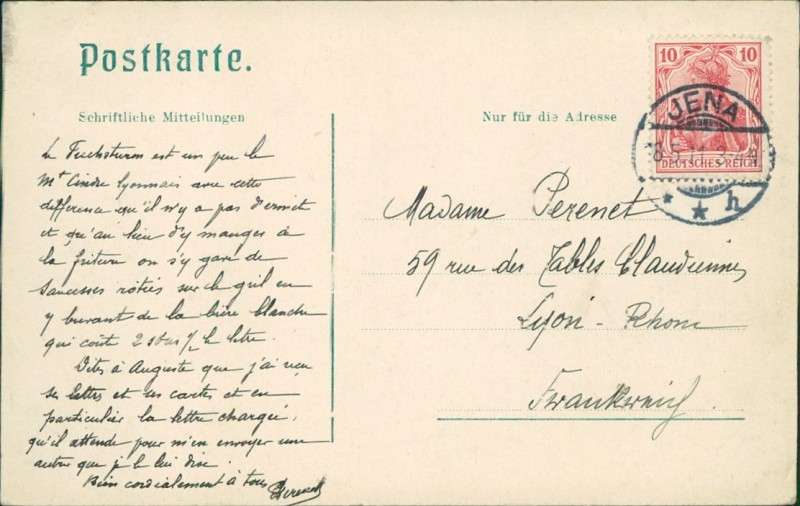 Postkarte.
Schriftliche Mitteilungen
Le Fuchsturm est un peu le
Mt Cindre lyonnais avec cette
différence qu'il n'y a pas d'ermite
et qu'au lieu d'y manger de
la friture on s'y gave de
saucisses rôties sur le gril en
y buvant de la bière blanche
qui coûte 2 sous ½ le litre.
Dites à Auguste que j'ai reçu
ses lettres et ses cartes et en
particulier la lettre chargée,
qu'il attende pour m'en envoyer une
autre que je le lui dise.
Bien cordialement à tous
Perenet
Nur für die Adresse
10 10
DEUTSCHES REICH
JENA
5.11. 3-4 N
h
Madame Perenet
59 rue des Tables Claudiennes
Lyon - Rhone
Frankreich.